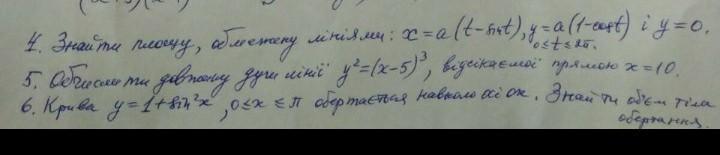 4. Знайти площу, обмежену лініями: x=a(t-sint), y=a(1-cost) і y=0.
0≤t≤2π.
5. Обчислити довжину дуги лінії y²=(x-5)³, відсікаємої прямою x=10.
6. Крива y=1+sin²x, 0≤x≤π обертається навколо осі ox. Знайти об'єм тіла
обертання.